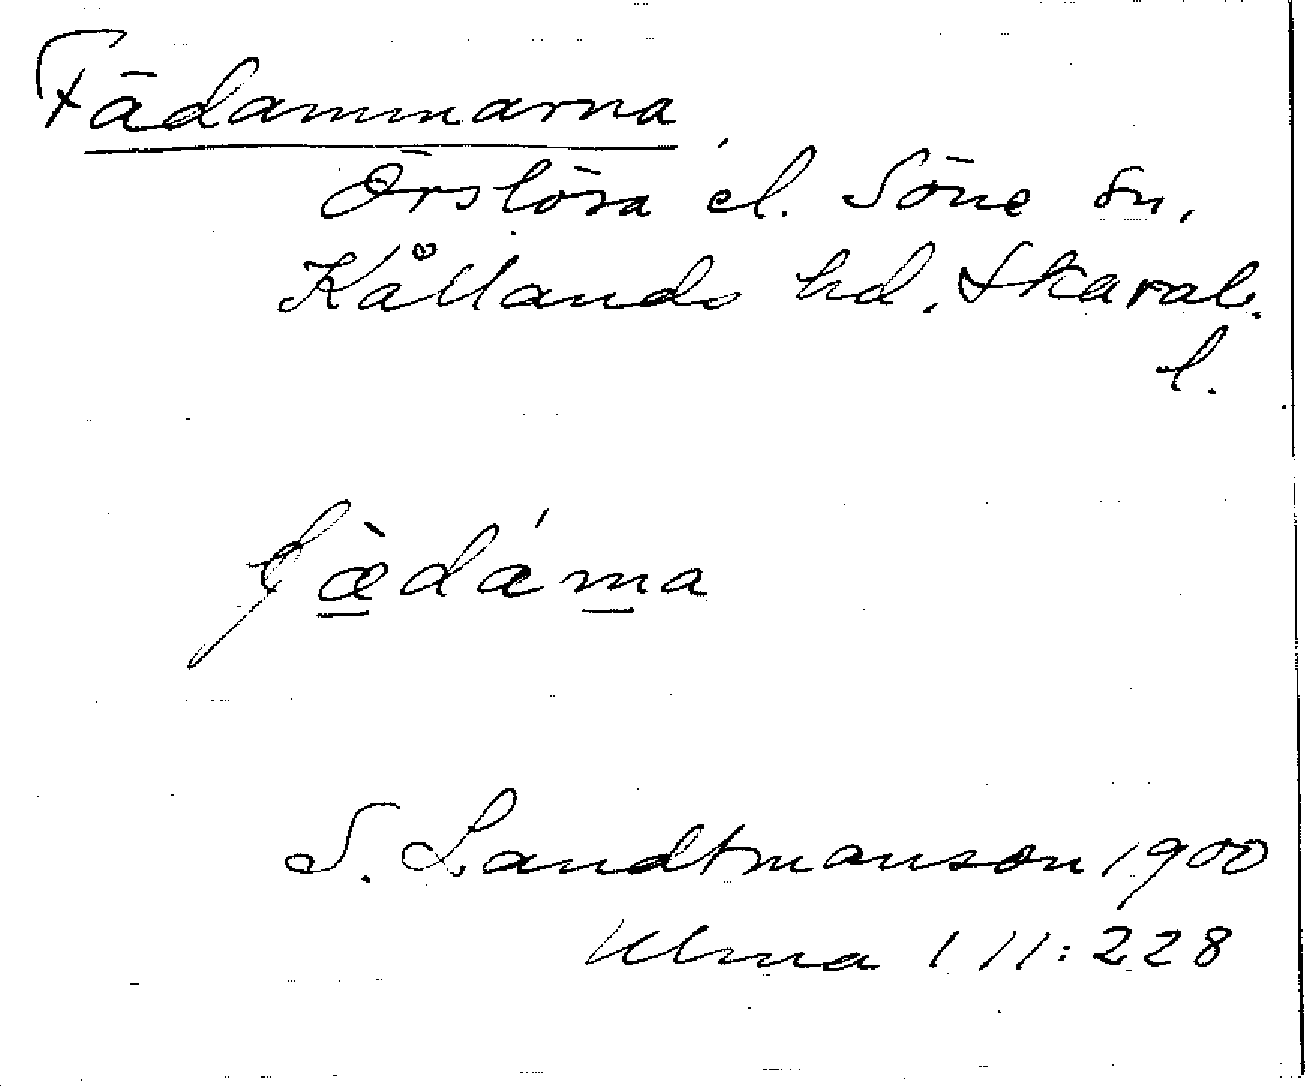 Fädammarna
Örslösa el. Söne sn,
Kållands hd. Skarab.
l.
fæ̀dáma
S. Landtmanson 1900
Ulma 111:228